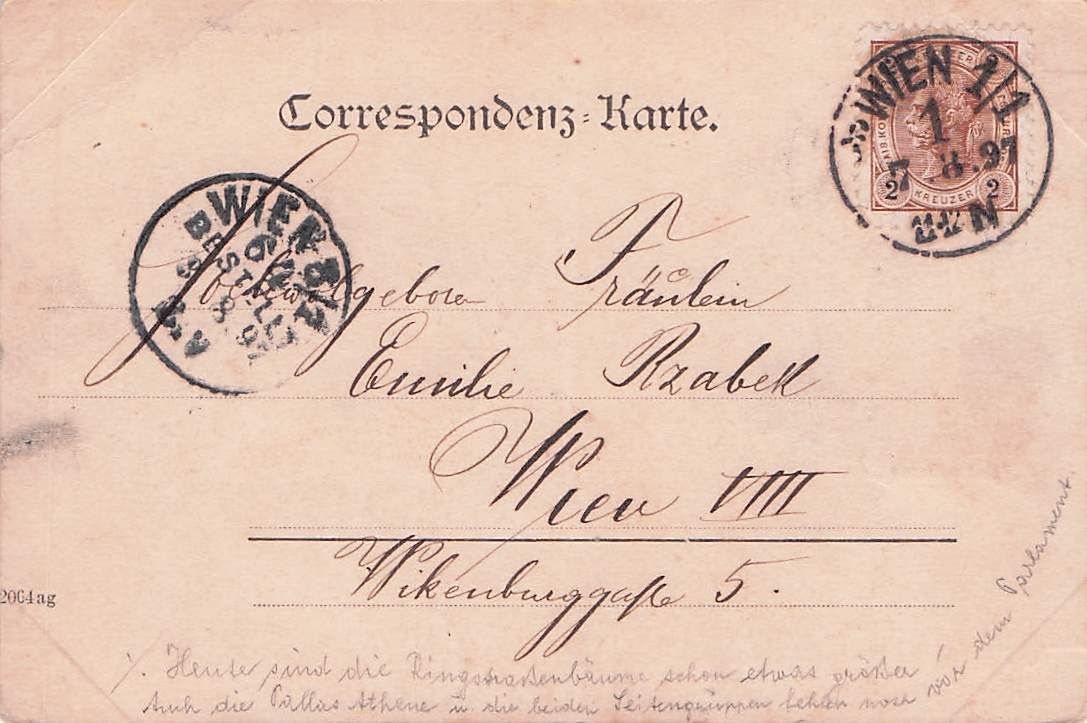 Correspondenz-Karte.
WIEN 1/1
1
7 8.97
2 KREUZER 2
WIEN 8/1
BESTELLT
Hochwolgeboren Fräulein
Emilie Rzabek
Wien VIII
Wikenburggasse 5.
2064ag
Heute sind die Ringstraßenbäume schon etwas größer!
Auch die Pallas Athene u. die beiden Seitengruppen fehlen noch vor dem Parlament.